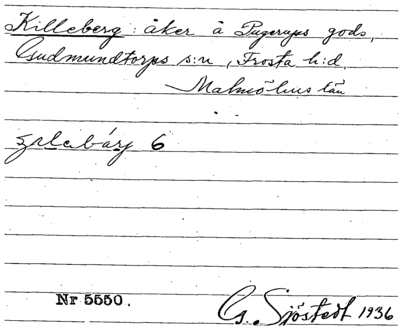 Killeberg: åker å Pugerups gods,
Gudmundtorps s:n, Frosta h:d,
Malmöhus län
6
Nr 5550.
G. Sjöstedt 1936